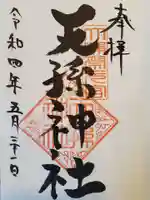 奉拝
天孫神社
令和四年五月二十一日